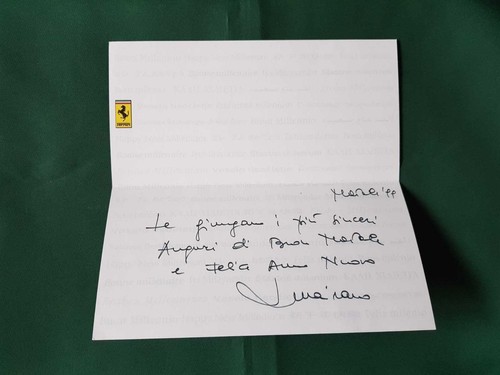 Ferrari
Natale 99
Le giungano i più sinceri
Auguri di Buon Natale
e Felice Anno Nuovo